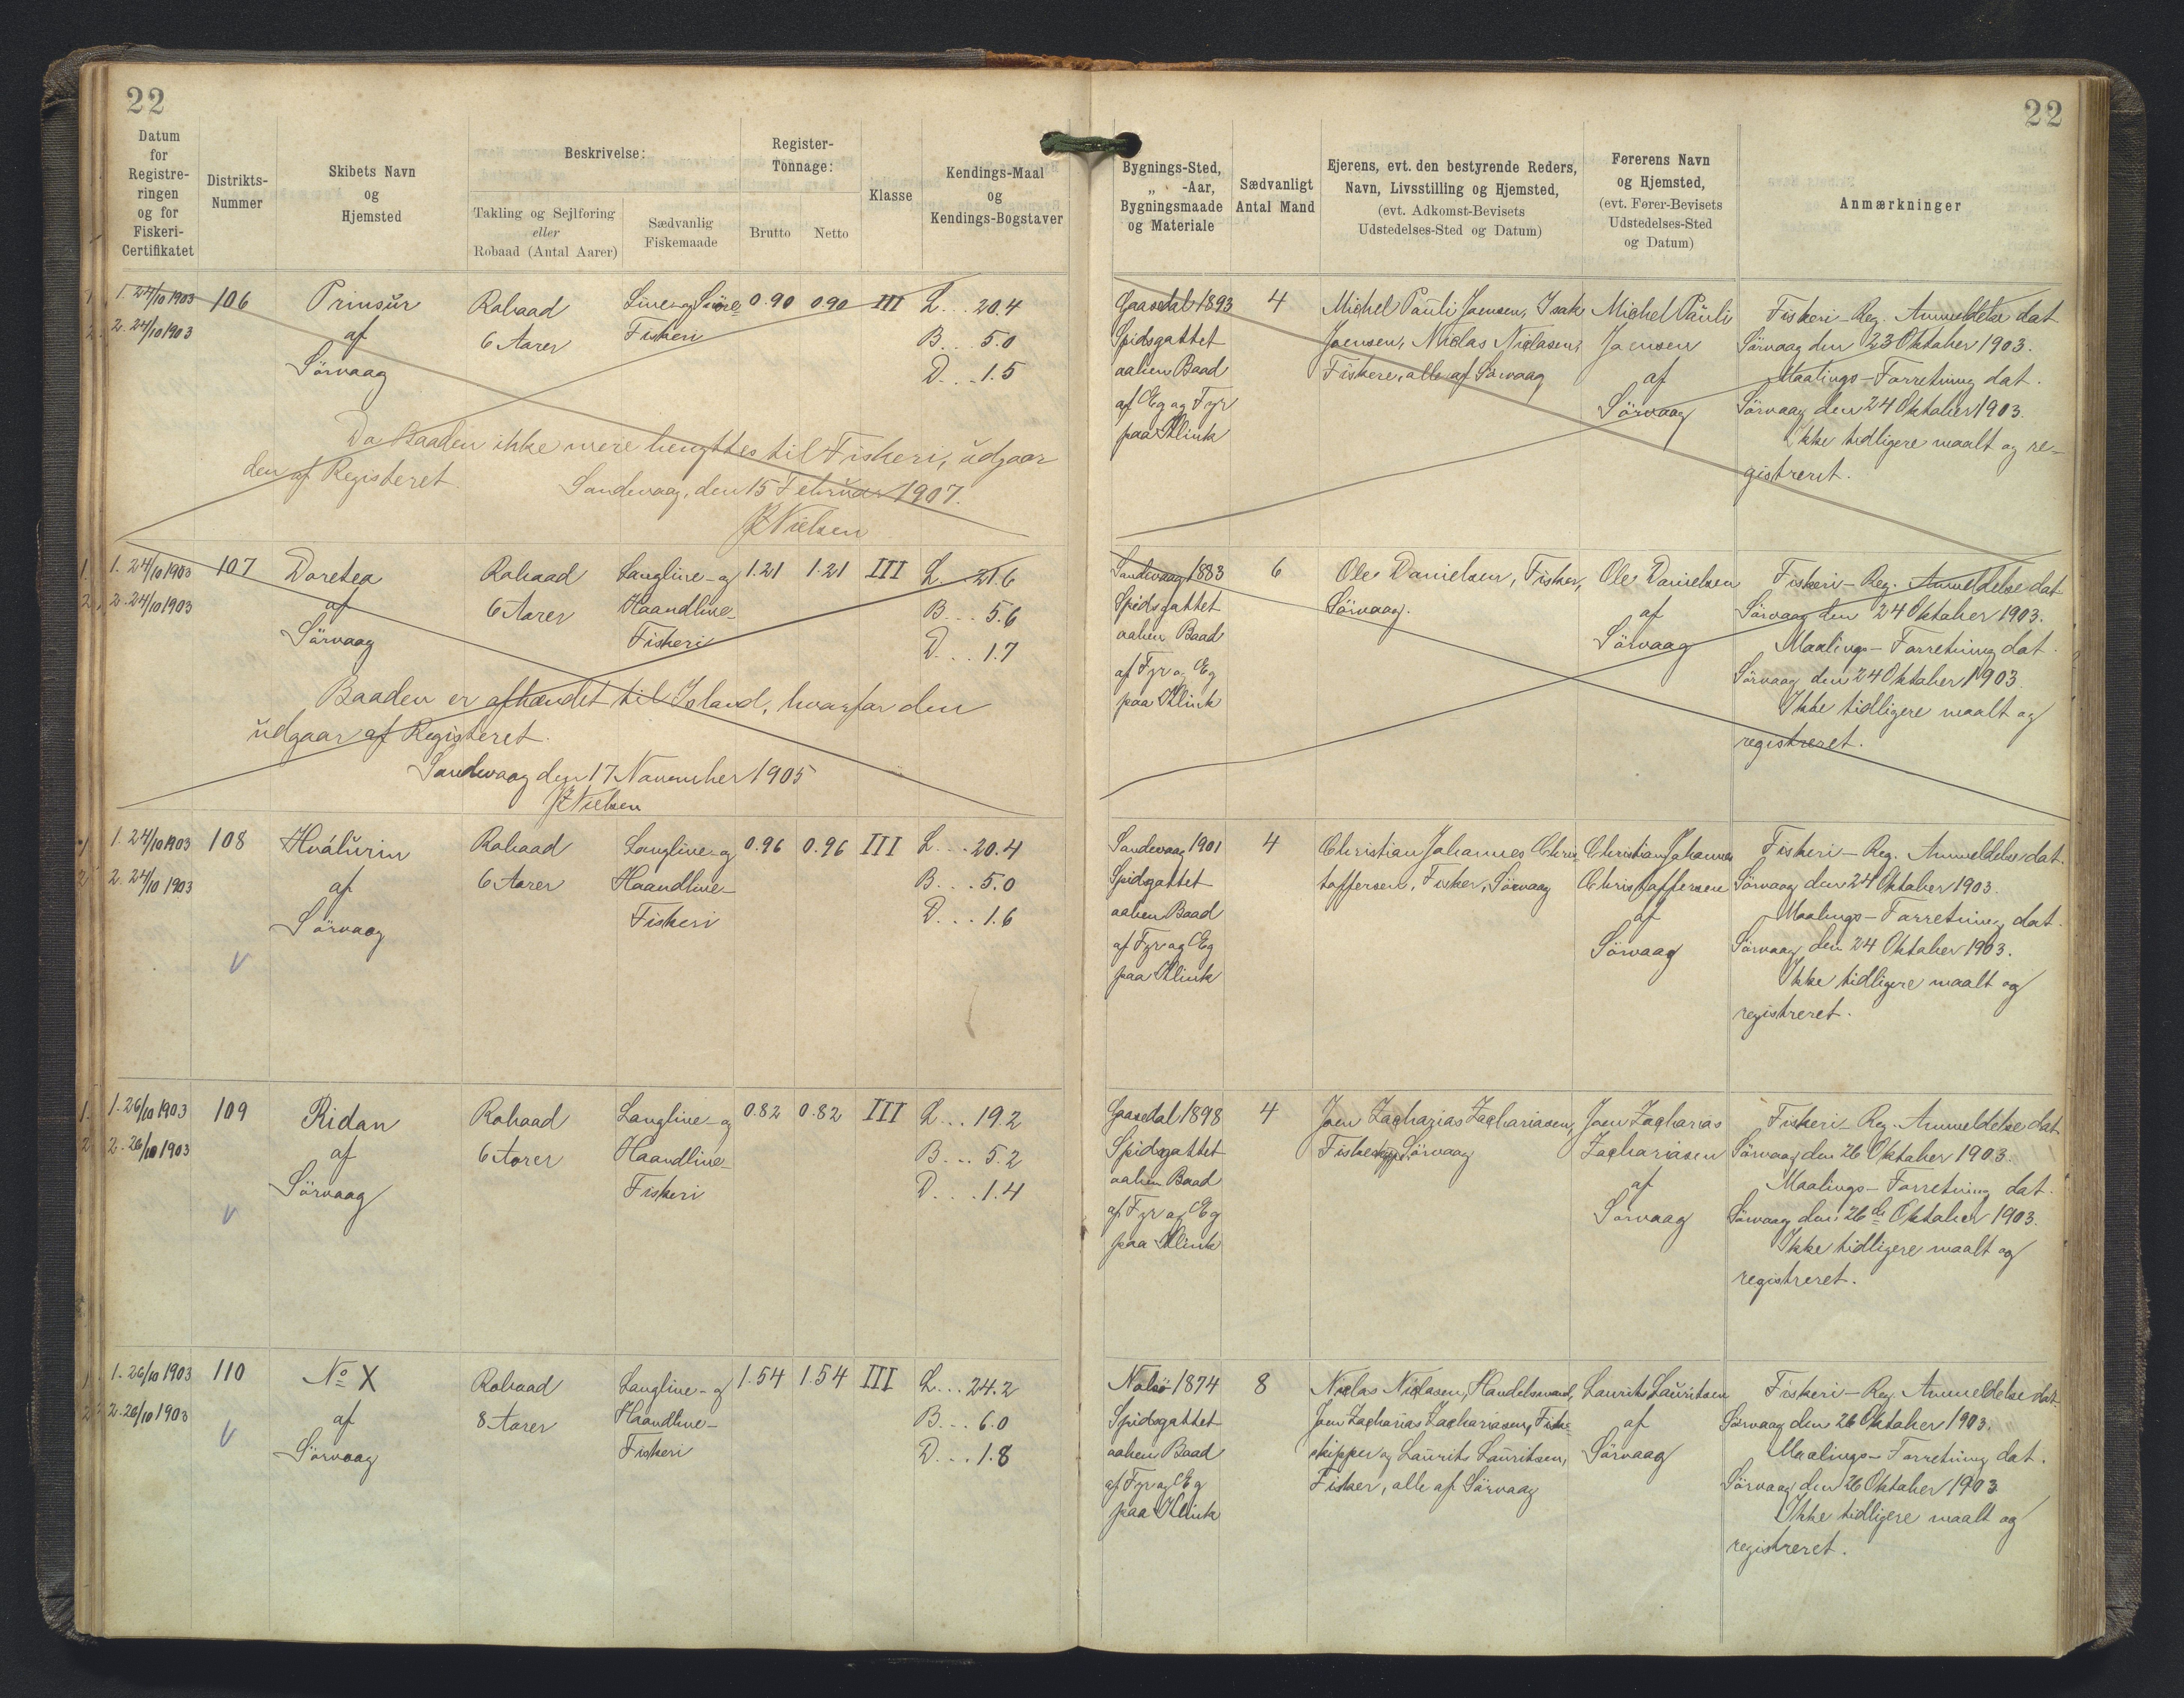 22
22
Datum
for
Registre-
ringen
og for
Fiskeri-
Certifikatet
Distrikts-
Nummer
Skibets Navn
og
Hjemsted
Beskrivelse:
Takling og Sejlføring
eller
Robaad (Antal Aarer)
Sædvanlig
Fiskemaade
Register-
Tonnage:
Brutto
Netto
Klasse
Kendings-Maal
og
Kendings-Bogstaver
Bygnings-Sted,
„ -Aar,
Bygningsmaade
og Materiale
Sædvanligt
Antal Mand
Ejerens, evt. den bestyrende Reders,
Navn, Livsstilling og Hjemsted,
(evt. Adkomst-Bevisets
Udstedelses-Sted og Datum)
Førerens Navn
og Hjemsted,
(evt. Fører-Bevisets
Udstedelses-Sted
og Datum)
Anmærkninger
1. 24/10 1903
2. 24/10 1903
106
Prinsur
af
Sörvaag
Robaad
6 Aarer
Line- og
Fiskeri
0.90
0.90
III
L... 20.4
B... 5.0
D... 1.5
Gaasedal 1893
Spidsgattet
aaben Baad
af Eg og Fyr
paa Klink
4
Michel Pauli Joensen, Isak
Joensen, Niclas Niclasen,
Fiskere, alle af Sörvaag
Michel Pauli
Joensen
af
Sörvaag
Fiskeri-Reg. Anmeldelse dat
Sörvaag den 23 Oktober 1903.
Maalings-Forretning dat.
Sörvaag den 24 Oktober 1903.
Ikke tidligere maalt og re-
gistreret.
Da Baaden ikke mere benyttes til Fiskeri, udgaar
den af Registeret.
Sandevaag, den 15 Februar 1907.
Nielsen
1. 24/10 1903
2. 24/10 1903
107
Doretea
af
Sörvaag
Robaad
6 Aarer
Langline- og
Haandline-
Fiskeri
1.21
1.21
III
L... 21.6
B... 5.6
D... 1.7
Sandevaag 1883
Spidsgattet
aaben Baad
af Fyr og Eg
paa Klink
6
Ole Danielsen, Fisker,
Sörvaag.
Ole Danielsen
af
Sörvaag
Fiskeri-Reg. Anmeldelse dat
Sörvaag den 24 Oktober 1903.
Maalings-Forretning dat.
Sörvaag den 24 Oktober 1903.
Ikke tidligere maalt og
registreret.
Baaden er afhændet til Island, hvorfor den
udgaar af Registeret.
Sandevaag den 17 November 1905
Nielsen
1. 24/10 1903
2. 24/10 1903
108
Hválurin
af
Sörvaag
Robaad
6 Aarer
Langline- og
Haandline-
Fiskeri
0.96
0.96
III
L... 20.4
B... 5.0
D... 1.6
Sandevaag 1901
Spidsgattet
aaben Baad
af Fyr og Eg
paa Klink
4
Christian Johannes Chris
toffersen, Fisker, Sörvaag
Christian Johannes
Christoffersen
af
Sörvaag
Fiskeri-Reg. Anmeldelse dat.
Sörvaag den 24 Oktober 1903.
Maalings-Forretning dat.
Sörvaag den 24 Oktober 1903.
Ikke tidligere maalt og
registreret.
1. 26/10 1903
2. 26/10 1903
109
Ridan
af
Sörvaag
Robaad
6 Aarer
Langline- og
Haandline-
Fiskeri
0.82
0.82
III
L... 19.2
B... 5.2
D... 1.4
Gaasedal 1898
Spidsgattet
aaben Baad
af Fyr og Eg
paa Klink
4
Joen Zacharias Zachariasen,
Sörvaag
Joen Zacharias
Zachariasen
af
Sörvaag
Fiskeri-Reg. Anmeldelse dat
Sörvaag den 26 Oktober 1903.
Maalings-Forretning dat.
Sörvaag den 26de Oktober 1903.
Ikke tidligere maalt og
registreret.
1. 26/10 1903
2. 26/10 1903
110
No X
af
Sörvaag
Robaad
8 Aarer
Langline- og
Haandline-
Fiskeri
1.54
1.54
III
L... 24.2
B... 6.0
D... 1.8
Nolsö 1874
Spidsgattet
aaben Baad
af Fyr og Eg
paa Klink
8
Niclas Niclasen, Handelsmand,
Joen Zacharias Zachariasen, Fiske-
skipper og Laurits Lauritsen,
Fisker, alle af Sörvaag
Laurits Lauritsen
af
Sörvaag
Fiskeri-Reg. Anmeldelse dat
Sörvaag den 26 Oktober 1903.
Maalings-Forretning dat.
Sörvaag den 26 Oktober 1903
Ikke tidligere maalt og
registreret.